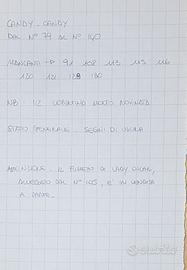 CANDY - CANDY
DAL N° 79 AL N° 140
MANCANO → 91 108 113 115 116
120 121 128 130
NB: IL VOLANTINO MOLTO ROVINATO
STATO GENERALE - SEGNI DI USURA
AGGIUNGERE: IL FUMETTO DI LADY OSCAR,
ALLEGATO DAL N° 105, E' IN VENDITA
A PARTE.
Subito